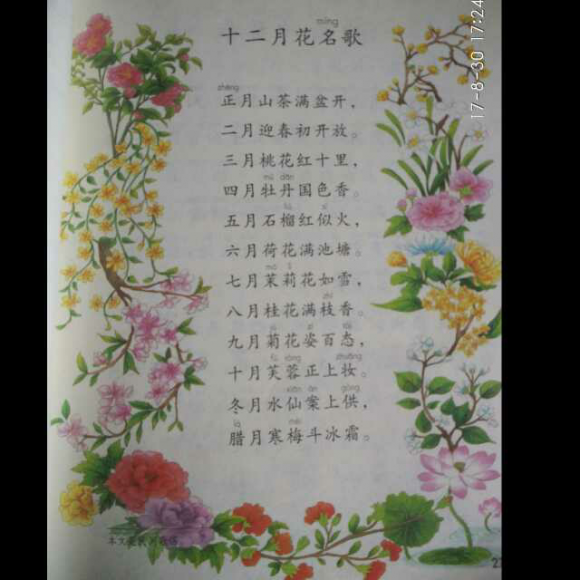 míng
十二月花名歌
zhēng
正月山茶满盆开，
二月迎春初开放。
三月桃花红十里，
mǔ dān
四月牡丹国色香。
liú sì
五月石榴红似火，
六月荷花满池塘。
mò lì
七月茉莉花如雪，
zhī
八月桂花满枝香。
jú zī tài
九月菊花姿百态，
fú róng zhuāng
十月芙蓉正上妆。
xiān àn gòng
冬月水仙案上供，
là méi
腊月寒梅斗冰霜。
17-8-30 17:24